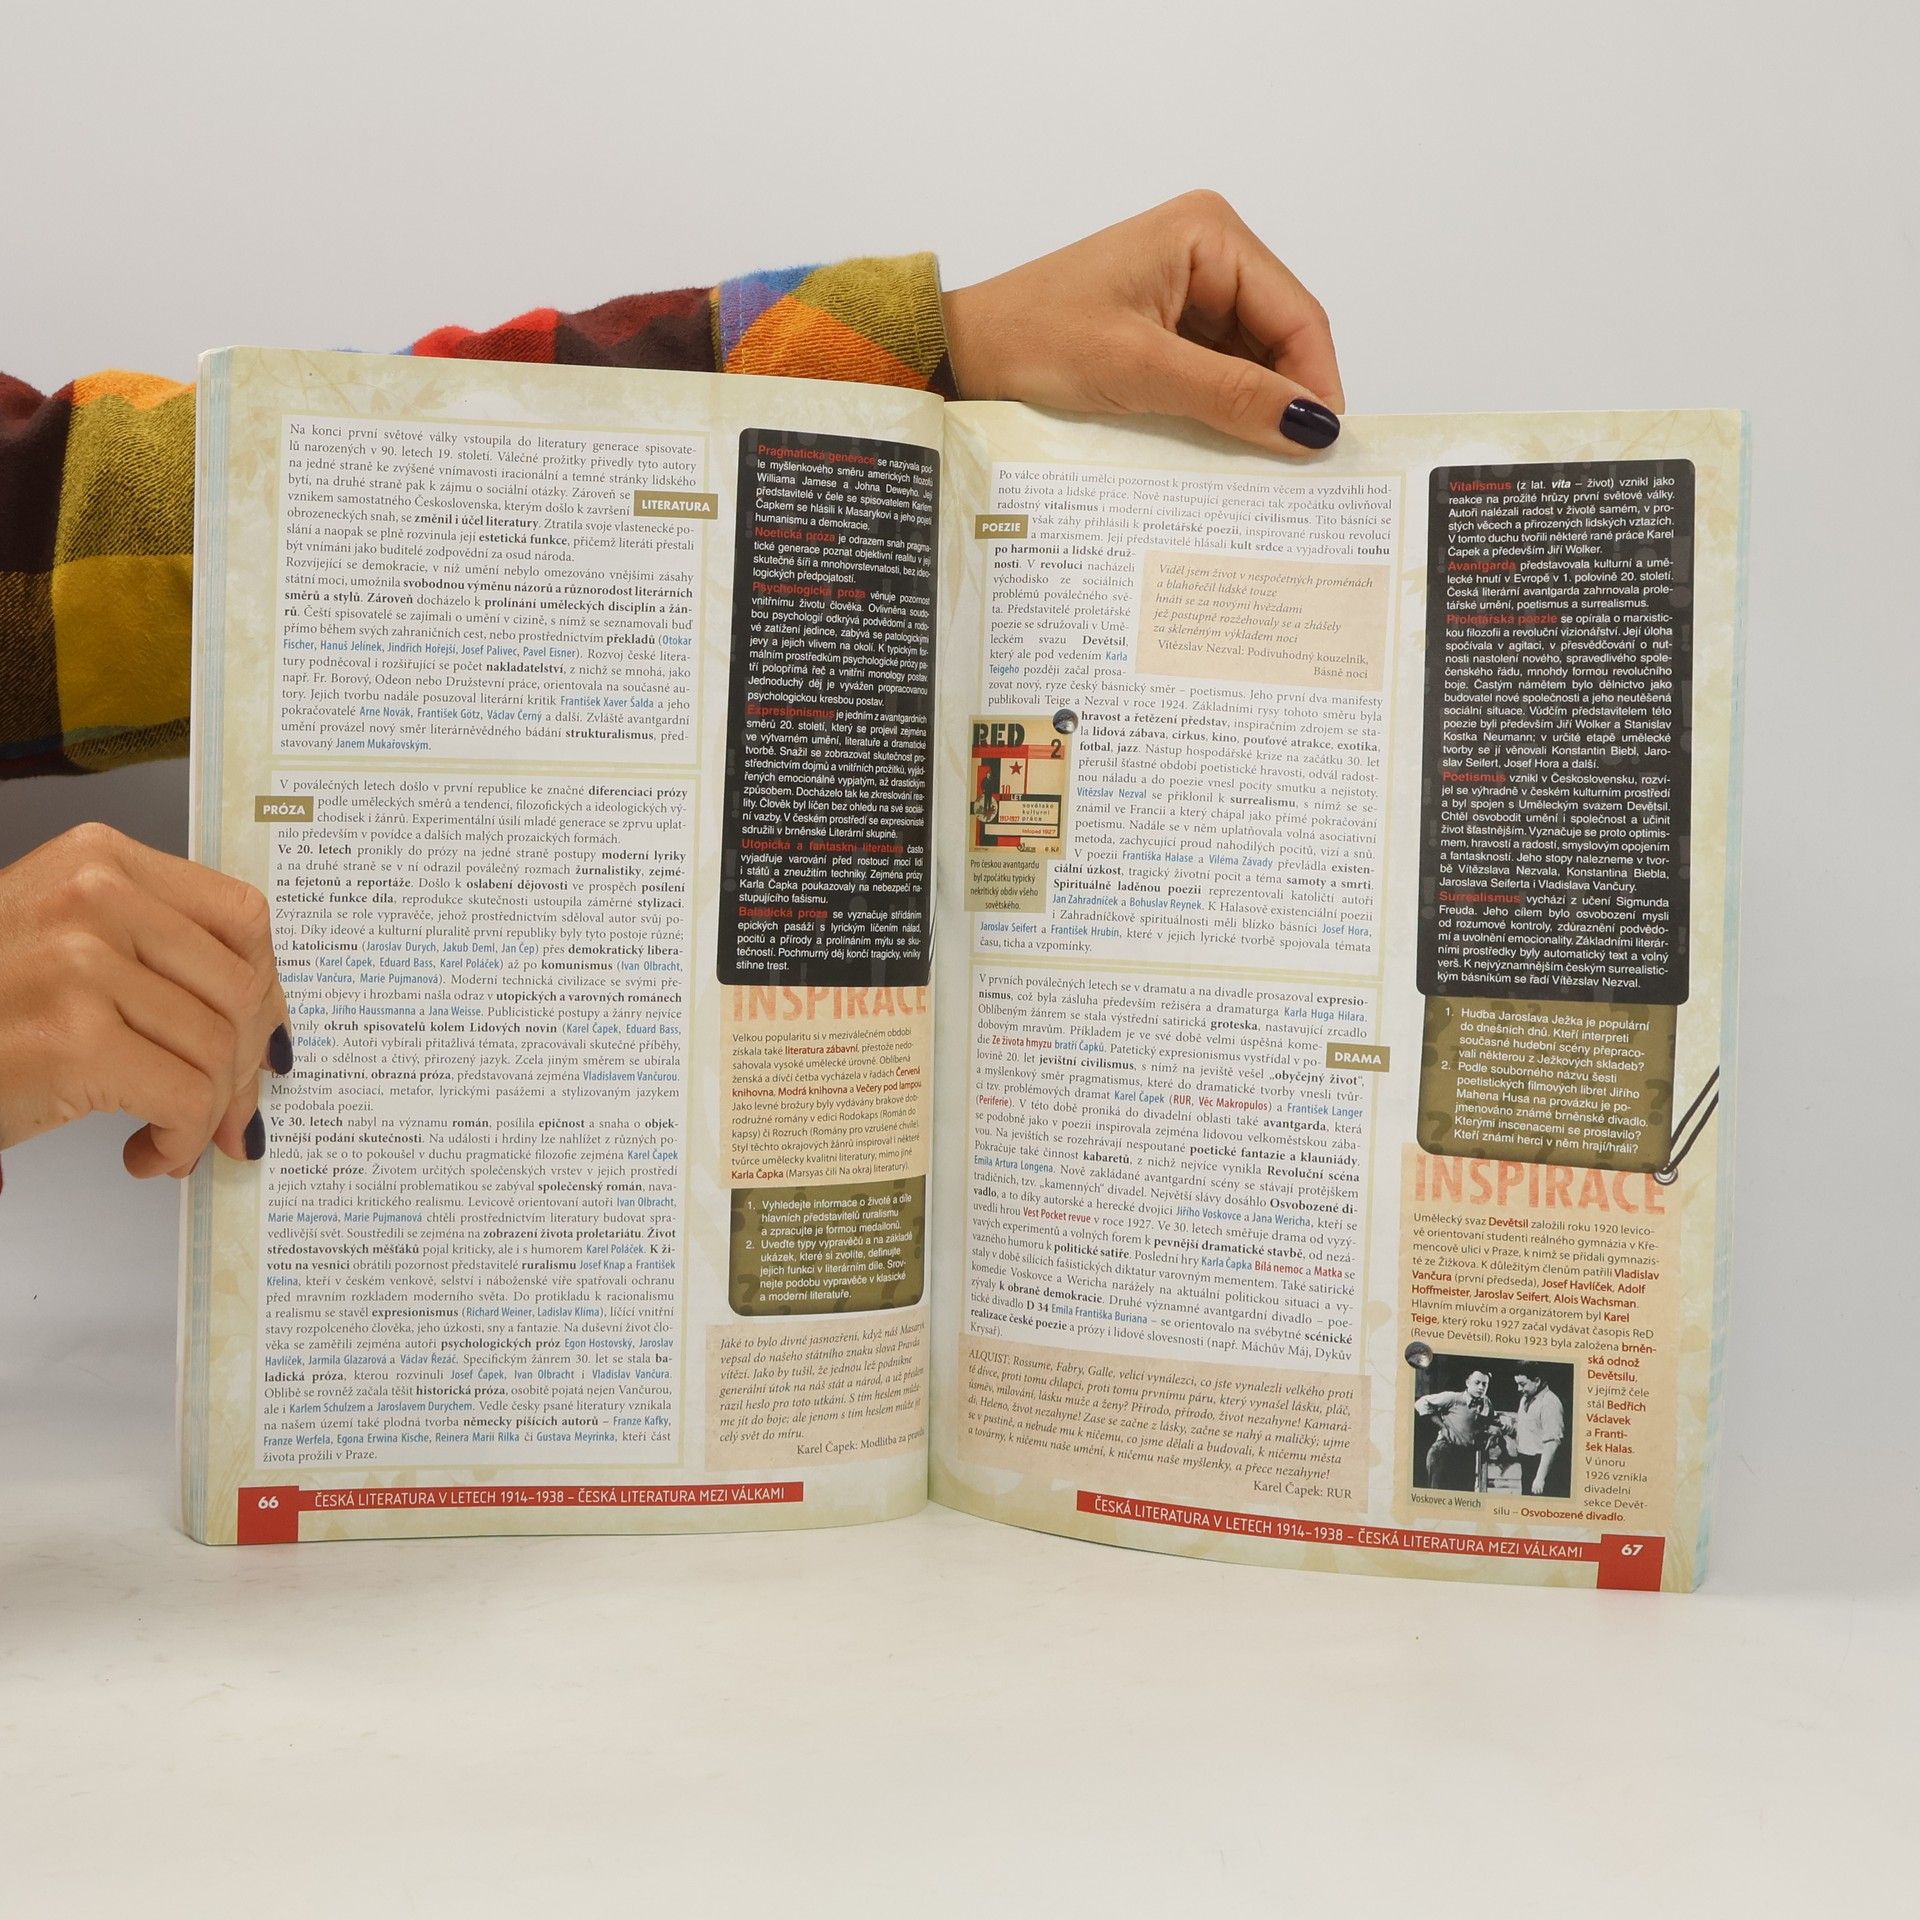 Na konci první světové války vstoupila do literatury generace spisovate-
lů narozených v 90. letech 19. století. Válečné prožitky přivedly tyto autory
na jedné straně ke zvýšené vnímavosti iracionální a temné stránky lidského
bytí, na druhé straně pak k zájmu o sociální otázky. Zároveň se
vznikem samostatného Československa, kterým došlo k završení
LITERATURA
obrozeneckých snah, se změnil i účel literatury. Ztratila svoje vlastenecké po-
slání a naopak se plně rozvinula její estetická funkce, přičemž literáti přestali
být vnímáni jako buditelé zodpovědní za osud národa.
Rozvíjející se demokracie, v níž umění nebylo omezováno vnějšími zásahy
státní moci, umožnila svobodnou výměnu názorů a různorodost literárních
směrů a stylů. Zároveň docházelo k prolínání uměleckých disciplín a žán-
rů. Čeští spisovatelé se zajímali o umění v cizině, s nímž se seznamovali buď
přímo během svých zahraničních cest, nebo prostřednictvím překladů (Otokar
Fischer, Hanuš Jelínek, Jindřich Hořejší, Josef Palivec, Pavel Eisner). Rozvoj české litera-
tury podněcoval i rozšiřující se počet nakladatelství, z nichž se mnohá, jako
např. Fr. Borový, Odeon nebo Družstevní práce, orientovala na současné au-
tory. Jejich tvorbu nadále posuzoval literární kritik František Xaver Šalda a jeho
pokračovatelé Arne Novák, František Götz, Václav Černý a další. Zvláště avantgardní
umění provázel nový směr literárněvědného bádání strukturalismus, před-
stavovaný Janem Mukařovským.
V poválečných letech došlo v první republice ke značné diferenciaci prózy
PRÓZA
podle uměleckých směrů a tendencí, filozofických a ideologických vý-
chodisek i žánrů. Experimentální úsilí mladé generace se zprvu uplat-
nilo především v povídce a dalších malých prozaických formách.
Ve 20. letech pronikly do prózy na jedné straně postupy moderní lyriky
a na druhé straně se v ní odrazil poválečný rozmach žurnalistiky, zejmé-
na fejetonů a reportáže. Došlo k oslabení dějovosti ve prospěch posílení
estetické funkce díla, reprodukce skutečnosti ustoupila záměrné stylizaci.
Zvýraznila se role vypravěče, jehož prostřednictvím sděloval autor svůj po-
stoj. Díky ideové a kulturní pluralitě první republiky byly tyto postoje různé;
od katolicismu (Jaroslav Durych, Jakub Deml, Jan Čep) přes demokratický libera-
lismus (Karel Čapek, Eduard Bass, Karel Poláček) až po komunismus (Ivan Olbracht,
Vladislav Vančura, Marie Pujmanová). Moderní technická civilizace se svými pře-
atnými objevy i hrozbami našla odraz v utopických a varovných románech
la Čapka, Jiřího Haussmanna a Jana Weisse. Publicistické postupy a žánry nejvíce
vnily okruh spisovatelů kolem Lidových novin (Karel Čapek, Eduard Bass,
l Poláček). Autoři vybírali přitažlivá témata, zpracovávali skutečné příběhy,
ovali o sdělnost a čtivý, přirozený jazyk. Zcela jiným směrem se ubírala
tzv. imaginativní, obrazná próza, představovaná zejména Vladislavem Vančurou.
Množstvím asociací, metafor, lyrickými pasážemi a stylizovaným jazykem
se podobala poezii.
Ve 30. letech nabyl na významu román, posílila epičnost a snaha o objek-
tivnější podání skutečnosti. Na události i hrdiny lze nahlížet z různých po-
hledů, jak se o to pokoušel v duchu pragmatické filozofie zejména Karel Čapek
v noetické próze. Životem určitých společenských vrstev v jejich prostředí
a jejich vztahy i sociální problematikou se zabýval společenský román, nava-
zující na tradici kritického realismu. Levicově orientovaní autoři Ivan Olbracht,
Marie Majerová, Marie Pujmanová chtěli prostřednictvím literatury budovat spra-
vedlivější svět. Soustředili se zejména na zobrazení života proletariátu. Život
středostavovských měšťáků pojal kriticky, ale i s humorem Karel Poláček. K ži-
votu na vesnici obrátili pozornost představitelé ruralismu Josef Knap a František
Křelina, kteří v českém venkově, selství i náboženské víře spatřovali ochranu
před mravním rozkladem moderního světa. Do protikladu k racionalismu
a realismu se stavěl expresionismus (Richard Weiner, Ladislav Klíma), líčící vnitřní
stavy rozpolceného člověka, jeho úzkosti, sny a fantazie. Na duševní život člo-
věka se zaměřili zejména autoři psychologických próz Egon Hostovský, Jaroslav
Havlíček, Jarmila Glazarová a Václav Řezáč. Specifickým žánrem 30. let se stala ba-
ladická próza, kterou rozvinuli Josef Čapek, Ivan Olbracht i Vladislav Vančura.
Oblibě se rovněž začala těšit historická próza, osobitě pojatá nejen Vančurou,
ale i Karlem Schulzem a Jaroslavem Durychem. Vedle česky psané literatury vznikala
na našem území také plodná tvorba německy píšících autorů – Franze Kafky,
Franze Werfela, Egona Erwina Kische, Reinera Marii Rilka či Gustava Meyrinka, kteří část
života prožili v Praze.
Pragmatická generace se nazývala pod-
le myšlenkového směru amerických filozofů
Williama Jamese a Johna Deweyho. Její
představitelé v čele se spisovatelem Karlem
Čapkem se hlásili k Masarykovi a jeho pojetí
humanismu a demokracie.
Noetická próza je odrazem snah pragma-
tické generace poznat objektivní realitu v její
skutečné šíři a mnohovrstevnatosti, bez ideo-
logických předpojatostí.
Psychologická próza věnuje pozornost
vnitřnímu životu člověka. Ovlivněna soudo-
bou psychologií odkrývá podvědomí a rodo-
vé zatížení jedince, zabývá se patologickými
jevy a jejich vlivem na okolí. K typickým for-
málním prostředkům psychologické prózy pa-
tří polopřímá řeč a vnitřní monology postav.
Jednoduchý děj je vyvážen propracovanou
psychologickou kresbou postav.
Expresionismus je jedním z avantgardních
směrů 20. století, který se projevil zejména
ve výtvarném umění, literatuře a dramatické
tvorbě. Snažil se zobrazovat skutečnost pro-
střednictvím dojmů a vnitřních prožitků, vyjád-
řených emocionálně vypjatým, až drastickým
způsobem. Docházelo tak ke zkreslování rea-
lity. Člověk byl líčen bez ohledu na své sociál-
ní vazby. V českém prostředí se expresionisté
sdružili v brněnské Literární skupině.
Utopická a fantaskní literatura často
vyjadřuje varování před rostoucí mocí lidí
i států a zneužitím techniky. Zejména prózy
Karla Čapka poukazovaly na nebezpečí na-
stupujícího fašismu.
Baladická próza se vyznačuje střídáním
epických pasáží s lyrickým líčením nálad,
pocitů a přírody a prolínáním mýtu se sku-
tečností. Pochmurný děj končí tragicky, viníky
stihne trest.
INSPIRACE
Velkou popularitu si v meziválečném období
získala také literatura zábavní, přestože nedo-
sahovala vysoké umělecké úrovně. Oblíbená
ženská a dívčí četba vycházela v řadách Červená
knihovna, Modrá knihovna a Večery pod lampou.
Jako levné brožury byly vydávány brakové dob-
rodružné romány v edici Rodokaps (Román do
kapsy) či Rozruch (Romány pro vzrušené chvíle).
Styl těchto okrajových žánrů inspiroval i některé
tvůrce umělecky kvalitní literatury, mimo jiné
Karla Čapka (Marsyas čili Na okraj literatury).
1. Vyhledejte informace o životě a díle
hlavních představitelů ruralismu
a zpracujte je formou medailonů.
2. Uveďte typy vypravěčů a na základě
ukázek, které si zvolíte, definujte
jejich funkci v literárním díle. Srov-
nejte podobu vypravěče v klasické
a moderní literatuře.
Jaké to bylo divné jasnozření, když náš Masaryk
vepsal do našeho státního znaku slova Pravda
vítězí. Jako by tušil, že jednou lež podnikne
generální útok na náš stát a národ, a už předem
razil heslo pro toto utkání. S tím heslem může-
me jít do boje; ale jenom s tím heslem může jít
celý svět do míru.
Karel Čapek: Modlitba za pravdu
66
ČESKÁ LITERATURA V LETECH 1914–1938 – ČESKÁ LITERATURA MEZI VÁLKAMI
Po válce obrátili umělci pozornost k prostým všedním věcem a vyzdvihli hod-
notu života a lidské práce. Nově nastupující generaci tak zpočátku ovlivňoval
radostný vitalismus i moderní civilizaci opěvující civilismus. Tito básníci se
POEZIE
však záhy přihlásili k proletářské poezii, inspirované ruskou revolucí
a marxismem. Její představitelé hlásali kult srdce a vyjadřovali touhu
po harmonii a lidské druž-
nosti. V revoluci nacházeli
východisko ze sociálních
problémů poválečného svě-
ta. Představitelé proletářské
poezie se sdružovali v Umě-
leckém svazu Devětsil,
který ale pod vedením Karla
Teigeho později začal prosa-
Viděl jsem život v nespočetných proměnách
a blahořečil lidské touze
hnáti se za novými hvězdami
jež postupně rozžehovaly se a zhášely
za skleněným výkladem noci
Vítězslav Nezval: Podivuhodný kouzelník,
Básně noci
zovat nový, ryze český básnický směr – poetismus. Jeho první dva manifesty
publikovali Teige a Nezval v roce 1924. Základními rysy tohoto směru byla
hravost a řetězení představ, inspiračním zdrojem se sta-
la lidová zábava, cirkus, kino, pouťové atrakce, exotika,
fotbal, jazz. Nástup hospodářské krize na začátku 30. let
přerušil šťastné období poetistické hravosti, odvál radost-
nou náladu a do poezie vnesl pocity smutku a nejistoty.
Vítězslav Nezval se přiklonil k surrealismu, s nímž se se-
známil ve Francii a který chápal jako přímé pokračování
poetismu. Nadále se v něm uplatňovala volná asociativní
metoda, zachycující proud nahodilých pocitů, vizí a snů.
V poezii Františka Halase a Viléma Závady převládla existen-
ciální úzkost, tragický životní pocit a téma samoty a smrti.
Spirituálně laděnou poezii reprezentovali katoličtí autoři
Jan Zahradníček a Bohuslav Reynek. K Halasově existenciální poezii
i Zahradníčkově spiritualnosti měli blízko básníci Josef Hora,
Jaroslav Seifert a František Hrubín, které v jejich lyrické tvorbě spojovala témata
času, ticha a vzpomínky.
RED
2
10
LET
sovětské
kulturní
práce
1917-1927
listopad 1927
Pro českou avantgardu
byl zpočátku typický
nekritický obdiv všeho
sovětského.
V prvních poválečných letech se v dramatu a na divadle prosazoval expresio-
nismus, což byla zásluha především režiséra a dramaturga Karla Huga Hilara.
Oblíbeným žánrem se stala výstřední satirická groteska, nastavující zrcadlo
dobovým mravům. Příkladem je ve své době velmi úspěšná kome-
die Ze života hmyzu bratří Čapků. Patetický expresionismus vystřídal v po-
DRAMA
lovině 20. let jevištní civilismus, s nímž na jeviště vešel „obyčejný život“,
a myšlenkový směr pragmatismus, které do dramatické tvorby vnesli tvůr-
ci tzv. problémových dramat Karel Čapek (RUR, Věc Makropulos) a František Langer
(Periferie). V této době proniká do divadelní oblasti také avantgarda, která
se podobně jako v poezii inspirovala zejména lidovou velkoměstskou zába-
vou. Na jevištích se rozehrávají nespoutané poetické fantazie a klauniády.
Pokračuje také činnost kabaretů, z nichž nejvíce vynikla Revoluční scéna
Emila Artura Longena. Nově zakládané avantgardní scény se stávají protějškem
tradičních, tzv. „kamenných“ divadel. Největší slávy dosáhlo Osvobozené di-
vadlo, a to díky autorské a herecké dvojici Jiřího Voskovce a Jana Wericha, kteří se
uvedli hrou Vest Pocket revue v roce 1927. Ve 30. letech směřuje drama od vyzý-
vavých experimentů a volných forem k pevnější dramatické stavbě, od nezá-
vazného humoru k politické satiře. Poslední hry Karla Čapka Bílá nemoc a Matka se
staly v době sílících fašistických diktatur varovným mementem. Také satirické
komedie Voskovce a Wericha narážely na aktuální politickou situaci a vy-
zývaly k obraně demokracie. Druhé významné avantgardní divadlo – poe-
tické divadlo D 34 Emila Františka Buriana – se orientovalo na svébytné scénické
realizace české poezie a prózy i lidové slovesnosti (např. Máchův Máj, Dykův
Krysař).
ALQUIST: Rossume, Fabry, Galle, velicí vynálezci, co jste vynalezli velkého proti
té dívce, proti tomu chlapci, proti tomu prvnímu páru, který vynašel lásku, pláč,
úsměv, milování, lásku muže a ženy? Přírodo, přírodo, život nezahyne! Kamará-
di, Heleno, život nezahyne! Zase se začne z lásky, začne se nahý a maličký; ujme
se v pustině, a nebude mu k ničemu, co jsme dělali a budovali, k ničemu města
a továrny, k ničemu naše umění, k ničemu naše myšlenky, a přece nezahyne!
Karel Čapek: RUR
Vitalismus (z lat. vita – život) vznikl jako
reakce na prožité hrůzy první světové války.
Autoři nalézali radost v životě samém, v pro-
stých věcech a přirozených lidských vztazích.
V tomto duchu tvořili některé rané práce Karel
Čapek a především Jiří Wolker.
Avantgarda představovala kulturní a umě-
lecké hnutí v Evropě v 1. polovině 20. století.
Česká literární avantgarda zahrnovala prole-
tářské umění, poetismus a surrealismus.
Proletářská poezie se opírala o marxistic-
kou filozofii a revoluční vizionářství. Její úloha
spočívala v agitaci, v přesvědčování o nut-
nosti nastolení nového, spravedlivého spole-
čenského řádu, mnohdy formou revolučního
boje. Častým námětem bylo dělnictvo jako
budovatel nové společnosti a jeho neutěšená
sociální situace. Vůdčím představitelem této
poezie byli především Jiří Wolker a Stanislav
Kostka Neumann; v určité etapě umělecké
tvorby se jí věnovali Konstantin Biebl, Jaro-
slav Seifert, Josef Hora a další.
Poetismus vznikl v Československu, rozví-
jel se výhradně v českém kulturním prostředí
a byl spojen s Uměleckým svazem Devětsil.
Chtěl osvobodit umění i společnost a učinit
život šťastnějším. Vyznačuje se proto optimis-
mem, hravostí a radostí, smyslovým opojením
a fantaskností. Jeho stopy nalezneme v tvor-
bě Vítězslava Nezvala, Konstantina Biebla,
Jaroslava Seiferta i Vladislava Vančury.
Surrealismus vychází z učení Sigmunda
Freuda. Jeho cílem bylo osvobození mysli
od rozumové kontroly, zdůraznění podvědo-
mí a uvolnění emocionality. Základními literár-
ními prostředky byly automatický text a volný
verš. K nejvýznamnějším českým surrealistic-
kým básníkům se řadí Vítězslav Nezval.
1. Hudba Jaroslava Ježka je populární
do dnešních dnů. Kteří interpreti
současné hudební scény přepraco-
vali některou z Ježkových skladeb?
2. Podle souborného názvu šesti
poetistických filmových libret Jiřího
Mahena Husa na provázku je po-
jmenováno známé brněnské divadlo.
Kterými inscenacemi se proslavilo?
Kteří známí herci v něm hrají/hráli?
INSPIRACE
Umělecký svaz Devětsil založili roku 1920 levico-
vě orientovaní studenti reálného gymnázia v Kře-
mencově ulici v Praze, k nimž se přidali gymnazis-
té ze Žižkova. K důležitým členům patřili Vladislav
Vančura (první předseda), Josef Havlíček, Adolf
Hoffmeister, Jaroslav Seifert, Alois Wachsman.
Hlavním mluvčím a organizátorem byl Karel
Teige, který roku 1927 začal vydávat časopis ReD
(Revue Devětsil). Roku 1923 byla založena brněn-
ská odnož
Devětsilu,
v jejímž čele
stál Bedřich
Václavek
a Franti-
šek Halas.
V únoru
1926 vznikla
divadelní
sekce Devět-
silu – Osvobozené divadlo.
Voskovec a Werich
ČESKÁ LITERATURA V LETECH 1914–1938 – ČESKÁ LITERATURA MEZI VÁLKAMI
67